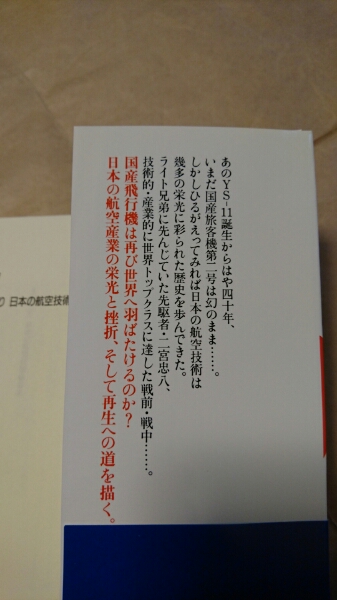 あのYS-11誕生からはや四十年、
いまだ国産旅客機第二号は幻のまま……。
しかしひるがえってみれば日本の航空技術は
幾多の栄光に彩られた歴史を歩んできた。
ライト兄弟に先んじていた先駆者・二宮忠八、
技術的・産業的に世界トップクラスに達した戦前・戦中……。
国産飛行機は再び世界へ羽ばたけるのか?
日本の航空産業の栄光と挫折、そして再生への道を描く。
日本の航空技術